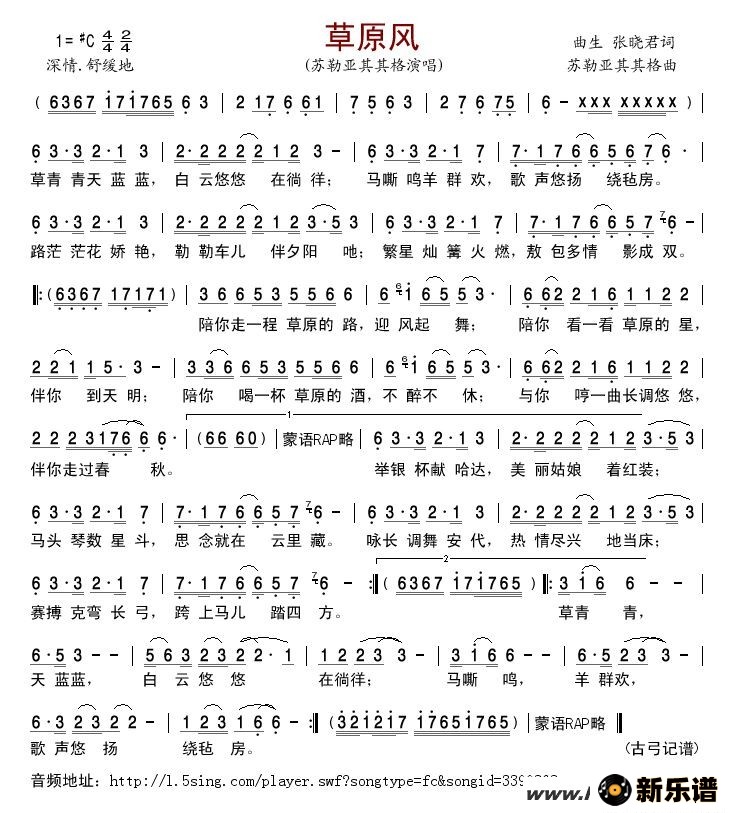 草原风
1=♯C 4/4 2/4
曲生 张晓君词
深情.舒缓地
(苏勒亚其其格演唱)
苏勒亚其其格曲
( 6367 171765 6 3 | 2 17 6 61 | 7 5 6 3 | 2 7 6 75 | 6 - xxx xxxxx )
6 3·3 2·1 3 | 2·2 2 2 2 2 1 2 3 - | 6 3·3 2·1 7 | 7·1 7 6 6 5 6 7 6 ·
草青 青天 蓝 蓝, 白 云悠悠 在徜 徉; 马嘶 鸣羊 群 欢, 歌 声悠扬 绕毡房。
6 3·3 2·1 3 | 2·2 2 2 2 2 1 2 3·5 3 | 6 3·3 2·1 7 | 7·1 7 6 6 5 6 5 7 6 -
路茫 茫花 娇 艳, 勒 勒车儿 伴夕阳 吔; 繁星 灿篝 火 燃, 敖 包多情 影成 双。
‖:(6367 17171) | 3 6 6 5 3 5 5 6 6 | 6 6 1 6 5 5 3· | 6 6 2 2 1 6 1 1 2 2
陪你走一程 草原的 路, 迎 风起 舞; 陪你 看一看 草原的 星,
2 2 1 1 5· 3 - | 3 3 6 6 5 3 5 5 6 6 | 6 6 1 6 5 5 3· | 6 6 2 2 1 6 1 1 2 2
伴你 到天 明; 陪你 喝一杯 草原的 酒, 不 醉不 休; 与你 哼一曲长调悠 悠,
1
2 2 2 3 1 7 6 6 6· | (66 60) | 蒙语RAP略 | 6 3·3 2·1 3 | 2·2 2 2 2 2 1 2 3·5 3
伴你走过春 秋。 举银 杯献 哈达, 美 丽姑娘 着红装;
6 3·3 2·1 7 | 7·1 7 6 6 6 5 7 6 - | 6 3·3 2·1 3 | 2·2 2 2 2 2 1 2 3·5 3
马头 琴数 星 斗, 思 念就在 云里 藏。 咏长 调舞 安 代, 热 情尽兴 地当床;
2
6 3·3 2·1 7 | 7·1 7 6 6 6 5 7 6 - :‖ (6367 171765) ‖: 3 1 6 6 -
赛搏 克弯 长 弓, 跨 上马儿 踏四 方。 草青 青,
6·5 3 - | 5 6 3 2 3 2 2· 1 | 1 2 2 3 3 - | 6·5 6 - | 6·5 3 -
天 蓝蓝, 白 云 悠 悠 在徜徉; 马嘶 鸣, 羊 群欢,
6·3 2 3 2 2 - | 1 2 3 1 6 6 - :‖ (3 2 1 2 1 7 1 7 6 5 1 7 6 5) | 蒙语RAP略 ‖
歌 声悠 扬 绕毡 房。 (古弓记谱)
音频地址: http://l.5sing.com/player.swf?songtype=fc&songid=
新乐谱